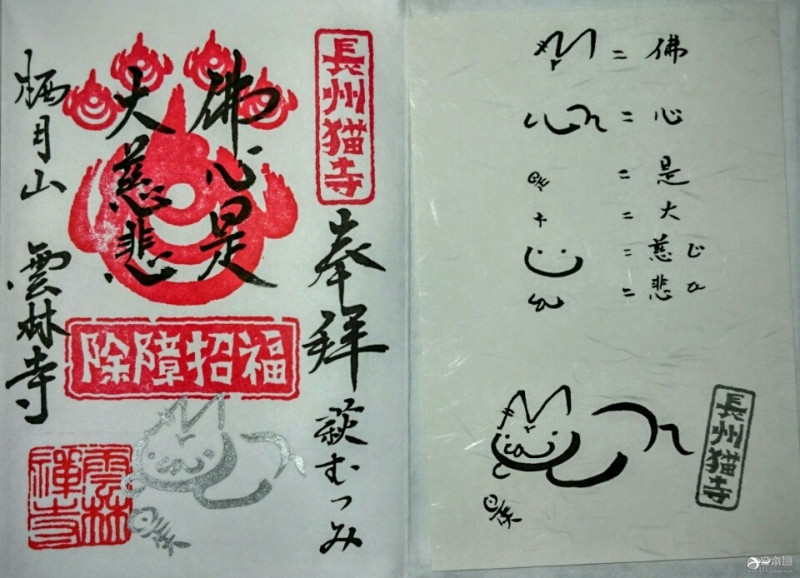 長州猫寺
奉拝 萩むつみ
佛心是
大慈悲
栖月山 雲林寺
除障招福
雲林
禅寺
= 佛
= 心
= 是
= 大
= 慈 じ
= 悲 ひ
長州猫寺
日本通